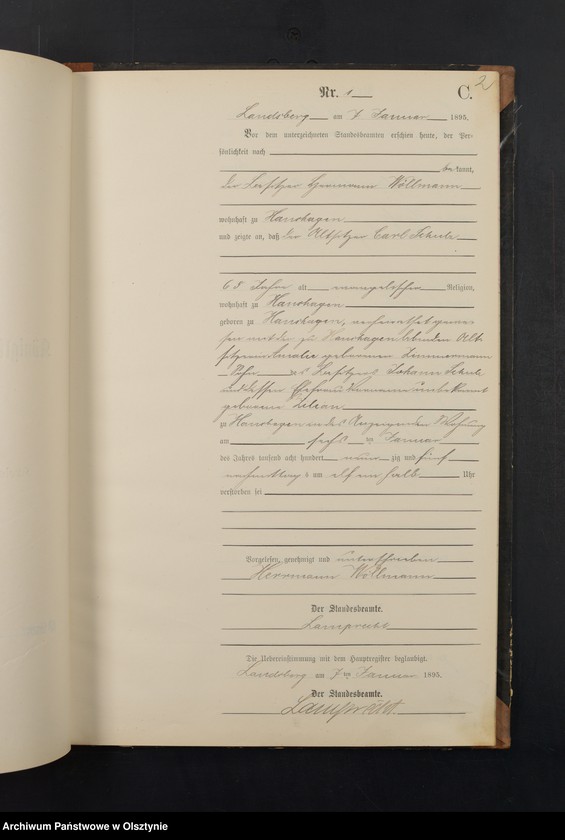 Nr. 1
C. 2
Landsberg am 7 Januar 1895.
Vor dem unterzeichneten Standesbeamten erschien heute, der Per-
sönlichkeit nach
bekannt,
der Besitzer Herrmann Wöllmann
wohnhaft zu Hanshagen
und zeigte an, daß der Altsitzer Carl
Jahre alt evangelischer Religion,
wohnhaft zu Hanshagen
geboren zu Hanshagen, verheirathet gewe
sen mit der zu Hanshagen lebenden Alt
sitzerin geborenen Zimmermann
Sohn des Besitzers Johann
und dessen Ehefrau Vorname unbekannt
geborene
zu Hanshagen in des Anzeigenden Wohnung
am sechsten Januar
des Jahres tausend acht hundert neun zig und fünf
nachmittags um elf ein halb Uhr
verstorben sei
Vorgelesen, genehmigt und unterschrieben
Herrmann Wöllmann
Der Standesbeamte.
Lamprecht
Die Uebereinstimmung mit dem Hauptregister beglaubigt.
Landsberg am 7ten Januar 1895.
Der Standesbeamte.
Lamprecht
Archiwum Państwowe w Olsztynie